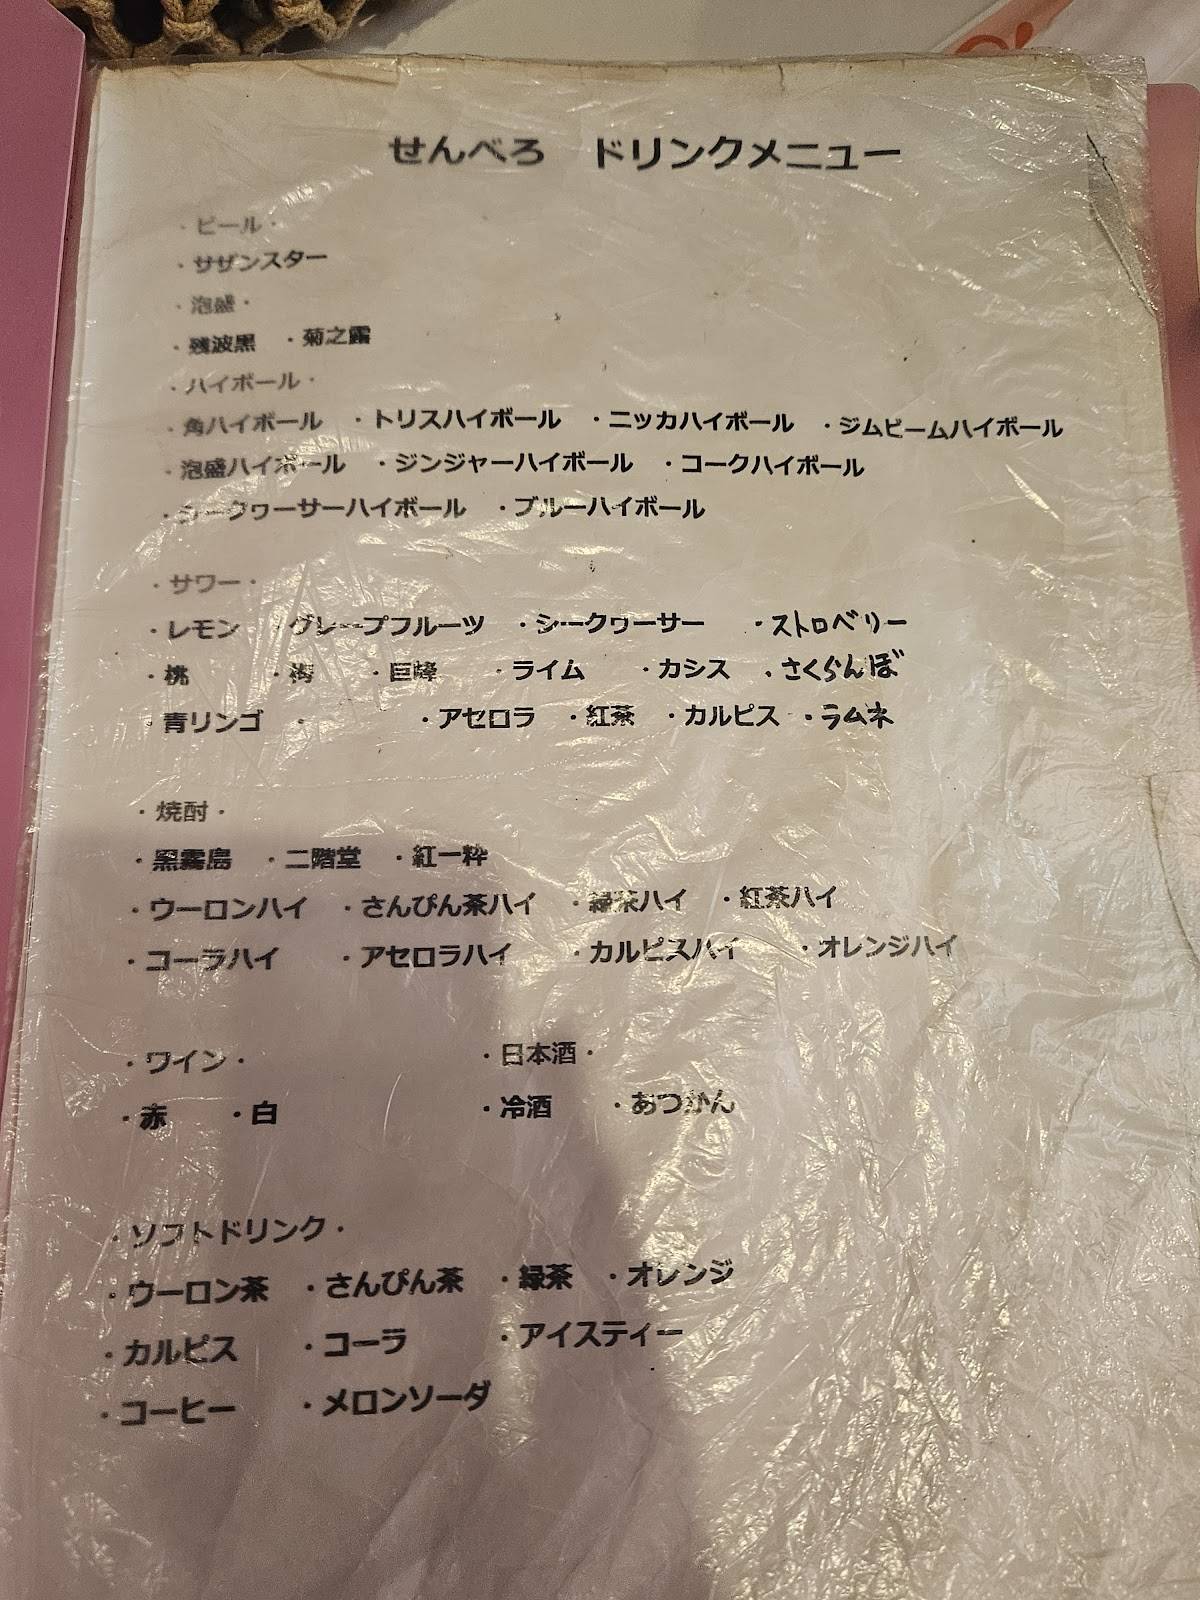 せんべろ ドリンクメニュー
・ビール・
・サザンスター
・泡盛・
・残波黒 ・菊之露
・ハイボール・
・角ハイボール ・トリスハイボール ・ニッカハイボール ・ジムビームハイボール
・泡盛ハイボール ・ジンジャーハイボール ・コークハイボール
・シークヮーサーハイボール ・ブルーハイボール
・サワー・
・レモン ・グレープフルーツ ・シークヮーサー ・ストロベリー
・桃 ・梅 ・巨峰 ・ライム ・カシス ・さくらんぼ
・青リンゴ ・ ・アセロラ ・紅茶 ・カルピス ・ラムネ
・焼酎・
・黒霧島 ・二階堂 ・紅一粋
・ウーロンハイ ・さんぴん茶ハイ ・緑茶ハイ ・紅茶ハイ
・コーラハイ ・アセロラハイ ・カルピスハイ ・オレンジハイ
・ワイン・ ・日本酒・
・赤 ・白 ・冷酒 ・あつかん
・ソフトドリンク・
・ウーロン茶 ・さんぴん茶 ・緑茶 ・オレンジ
・カルピス ・コーラ ・アイスティー
・コーヒー ・メロンソーダ